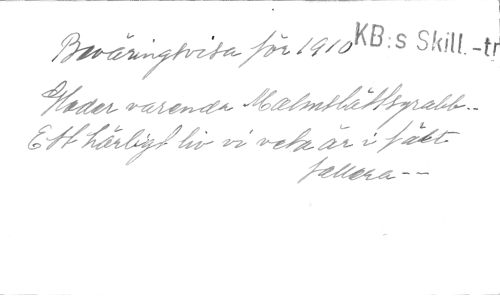 Beväringsvisa för 1910 KB:s Skill.-tr
Heder varenda Malmslättsgrabb..
Ett härligt liv vi veta är i fält
fallera--